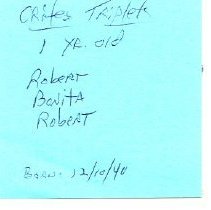 Crites Triplets
1 yr. old
Robert
Bonita
Robert
Born: 12/10/40